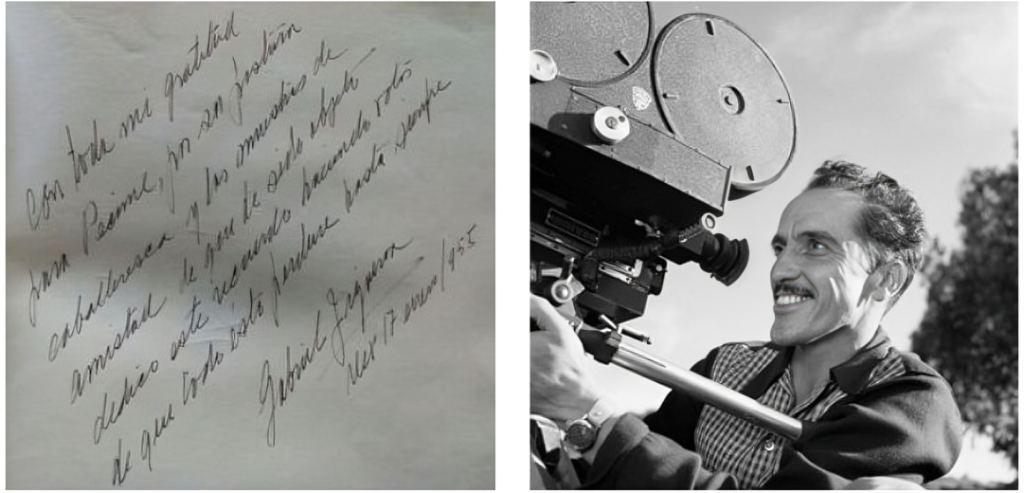 Con toda mi gratitud
para Pecime, por su postura
caballeresca y las muestras de
amistad de que he sido objeto
dedico este recuerdo haciendo votos
de que todo esto perdure hasta siempre
Gabriel Figueroa
Mex 17 enero/955